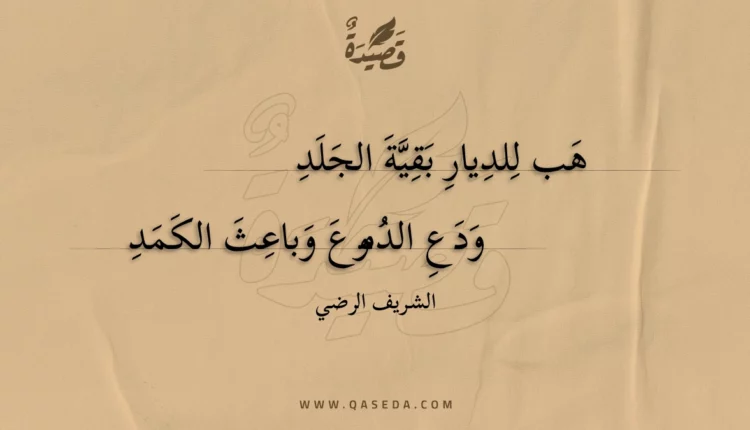 قَصِيدَةٌ
هَب لِلدِيارِ بَقِيَّةَ الجَلَدِ
وَدَعِ الدُموعَ وَباعِثَ الكَمَدِ
الشريف الرضي
WWW.QASEDA.COM